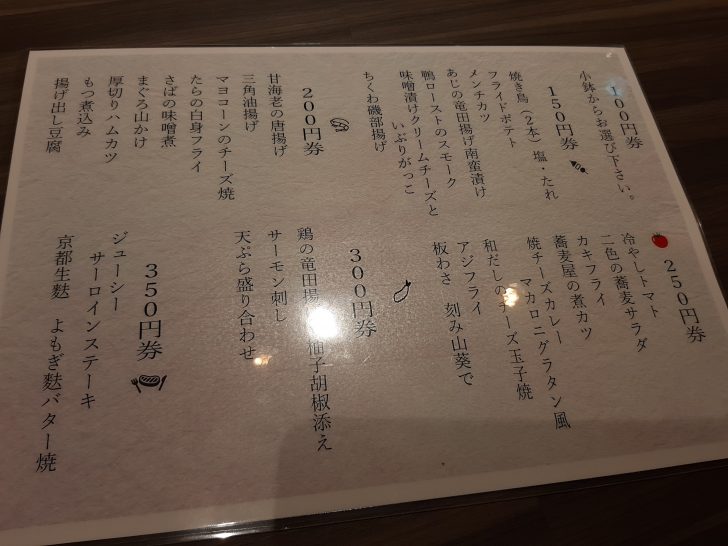 100円券
小鉢からお選び下さい。
150円券
焼き鳥（2本）塩・たれ
フライドポテト
メンチカツ
あじの竜田揚げ南蛮漬け
鴨ローストのスモーク
味噌漬けクリームチーズと
いぶりがっこ
ちくわ磯部揚げ
200円券
甘海老の唐揚げ
三角油揚げ
マヨコーンのチーズ焼
たらの白身フライ
さばの味噌煮
まぐろ山かけ
厚切りハムカツ
もつ煮込み
揚げ出し豆腐
250円券
冷やしトマト
二色の蕎麦サラダ
カキフライ
蕎麦屋の煮カツ
焼チーズカレー
マカロニグラタン風
和だしのチーズ玉子焼
アジフライ
板わさ　刻み山葵で
300円券
鶏の竜田揚 柚子胡椒添え
サーモン刺し
天ぷら盛り合わせ
350円券
ジューシー
サーロインステーキ
京都生麩　よもぎ麩バター焼